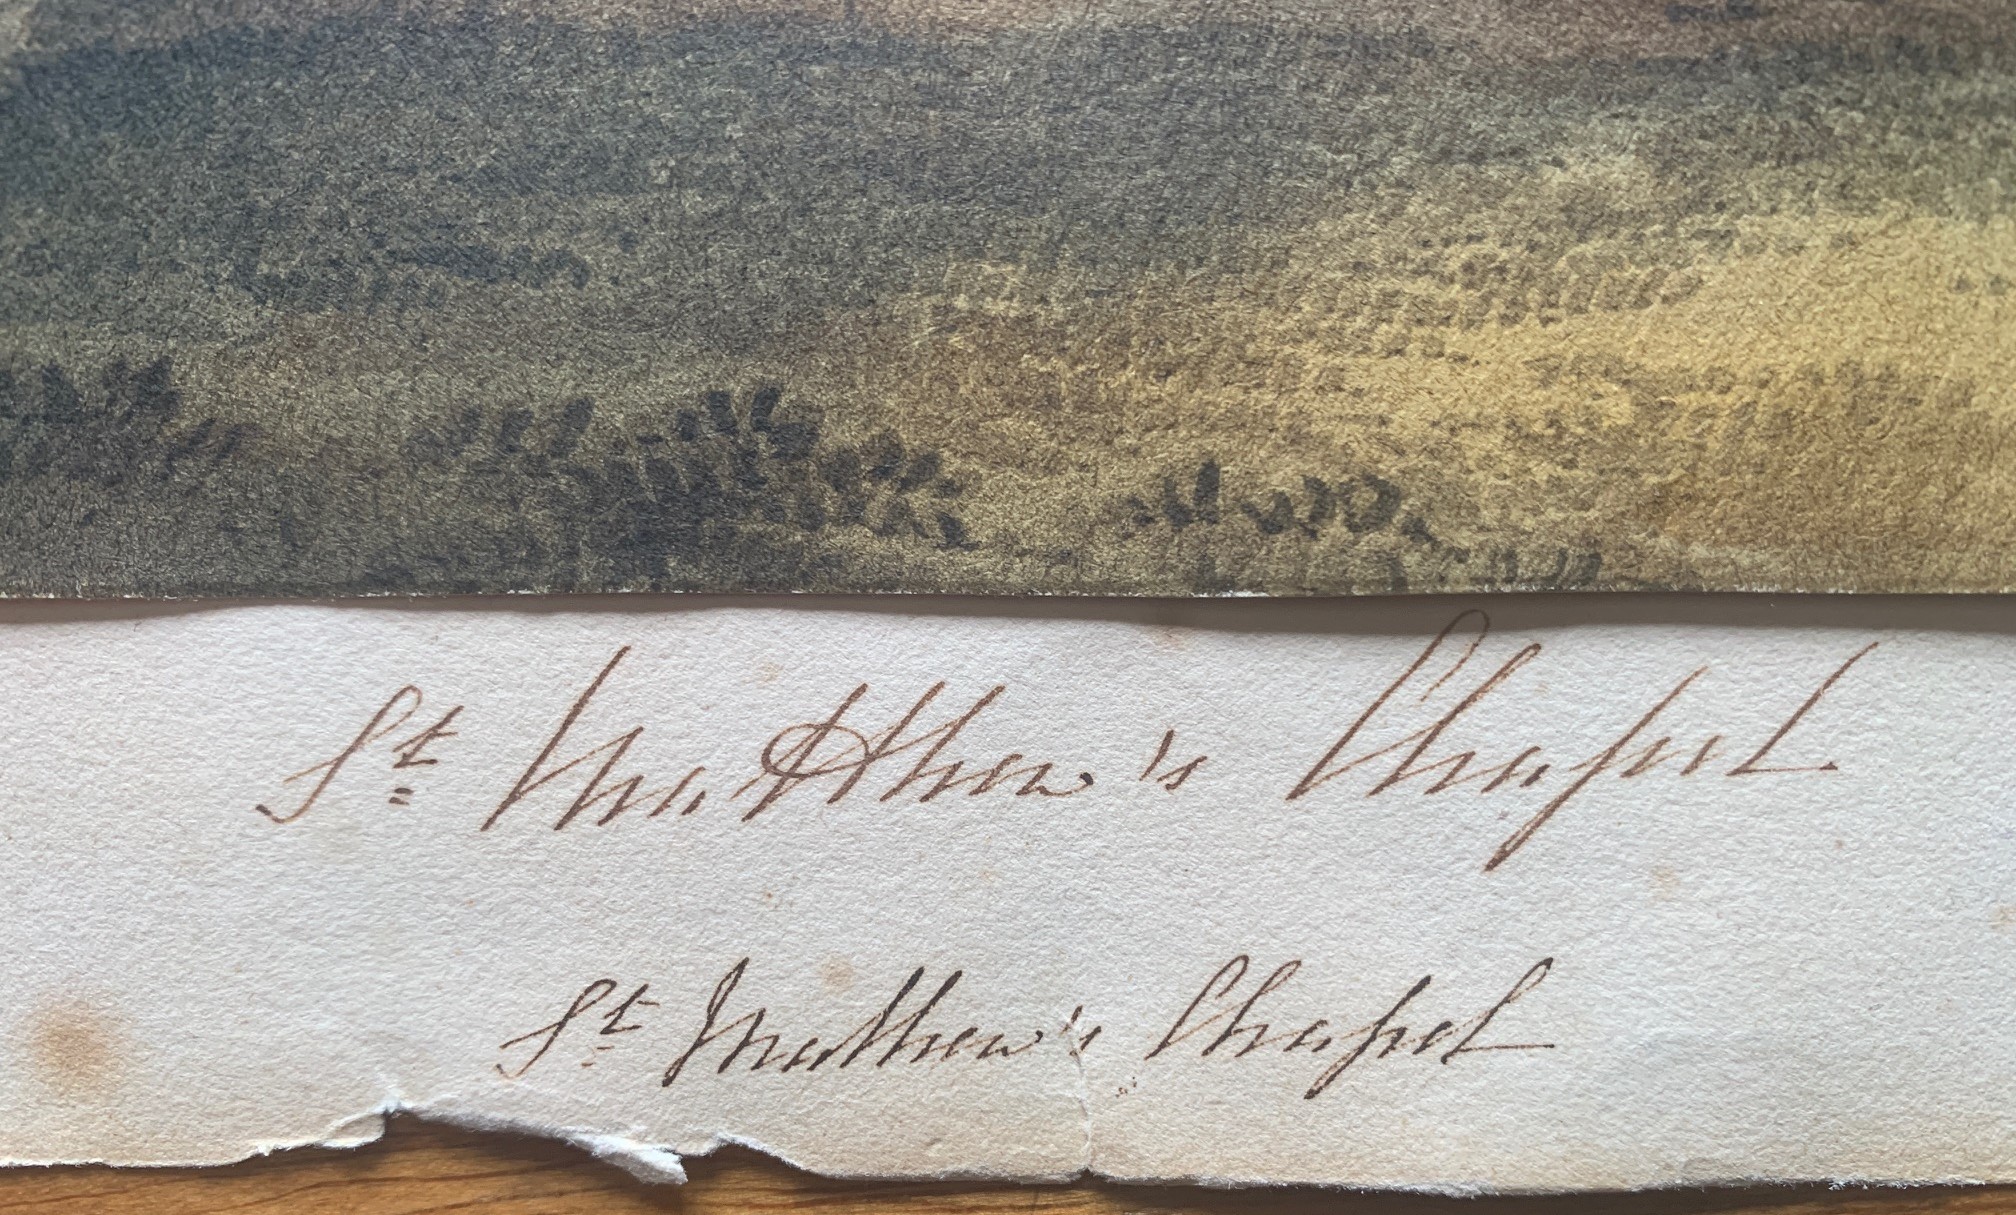 St Matthew's Chapel
St Mathew's Chapel